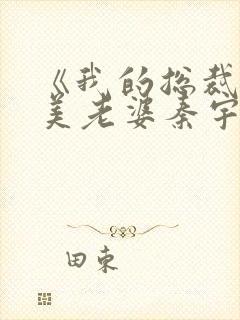 《我的总裁
美老婆秦宇
田东